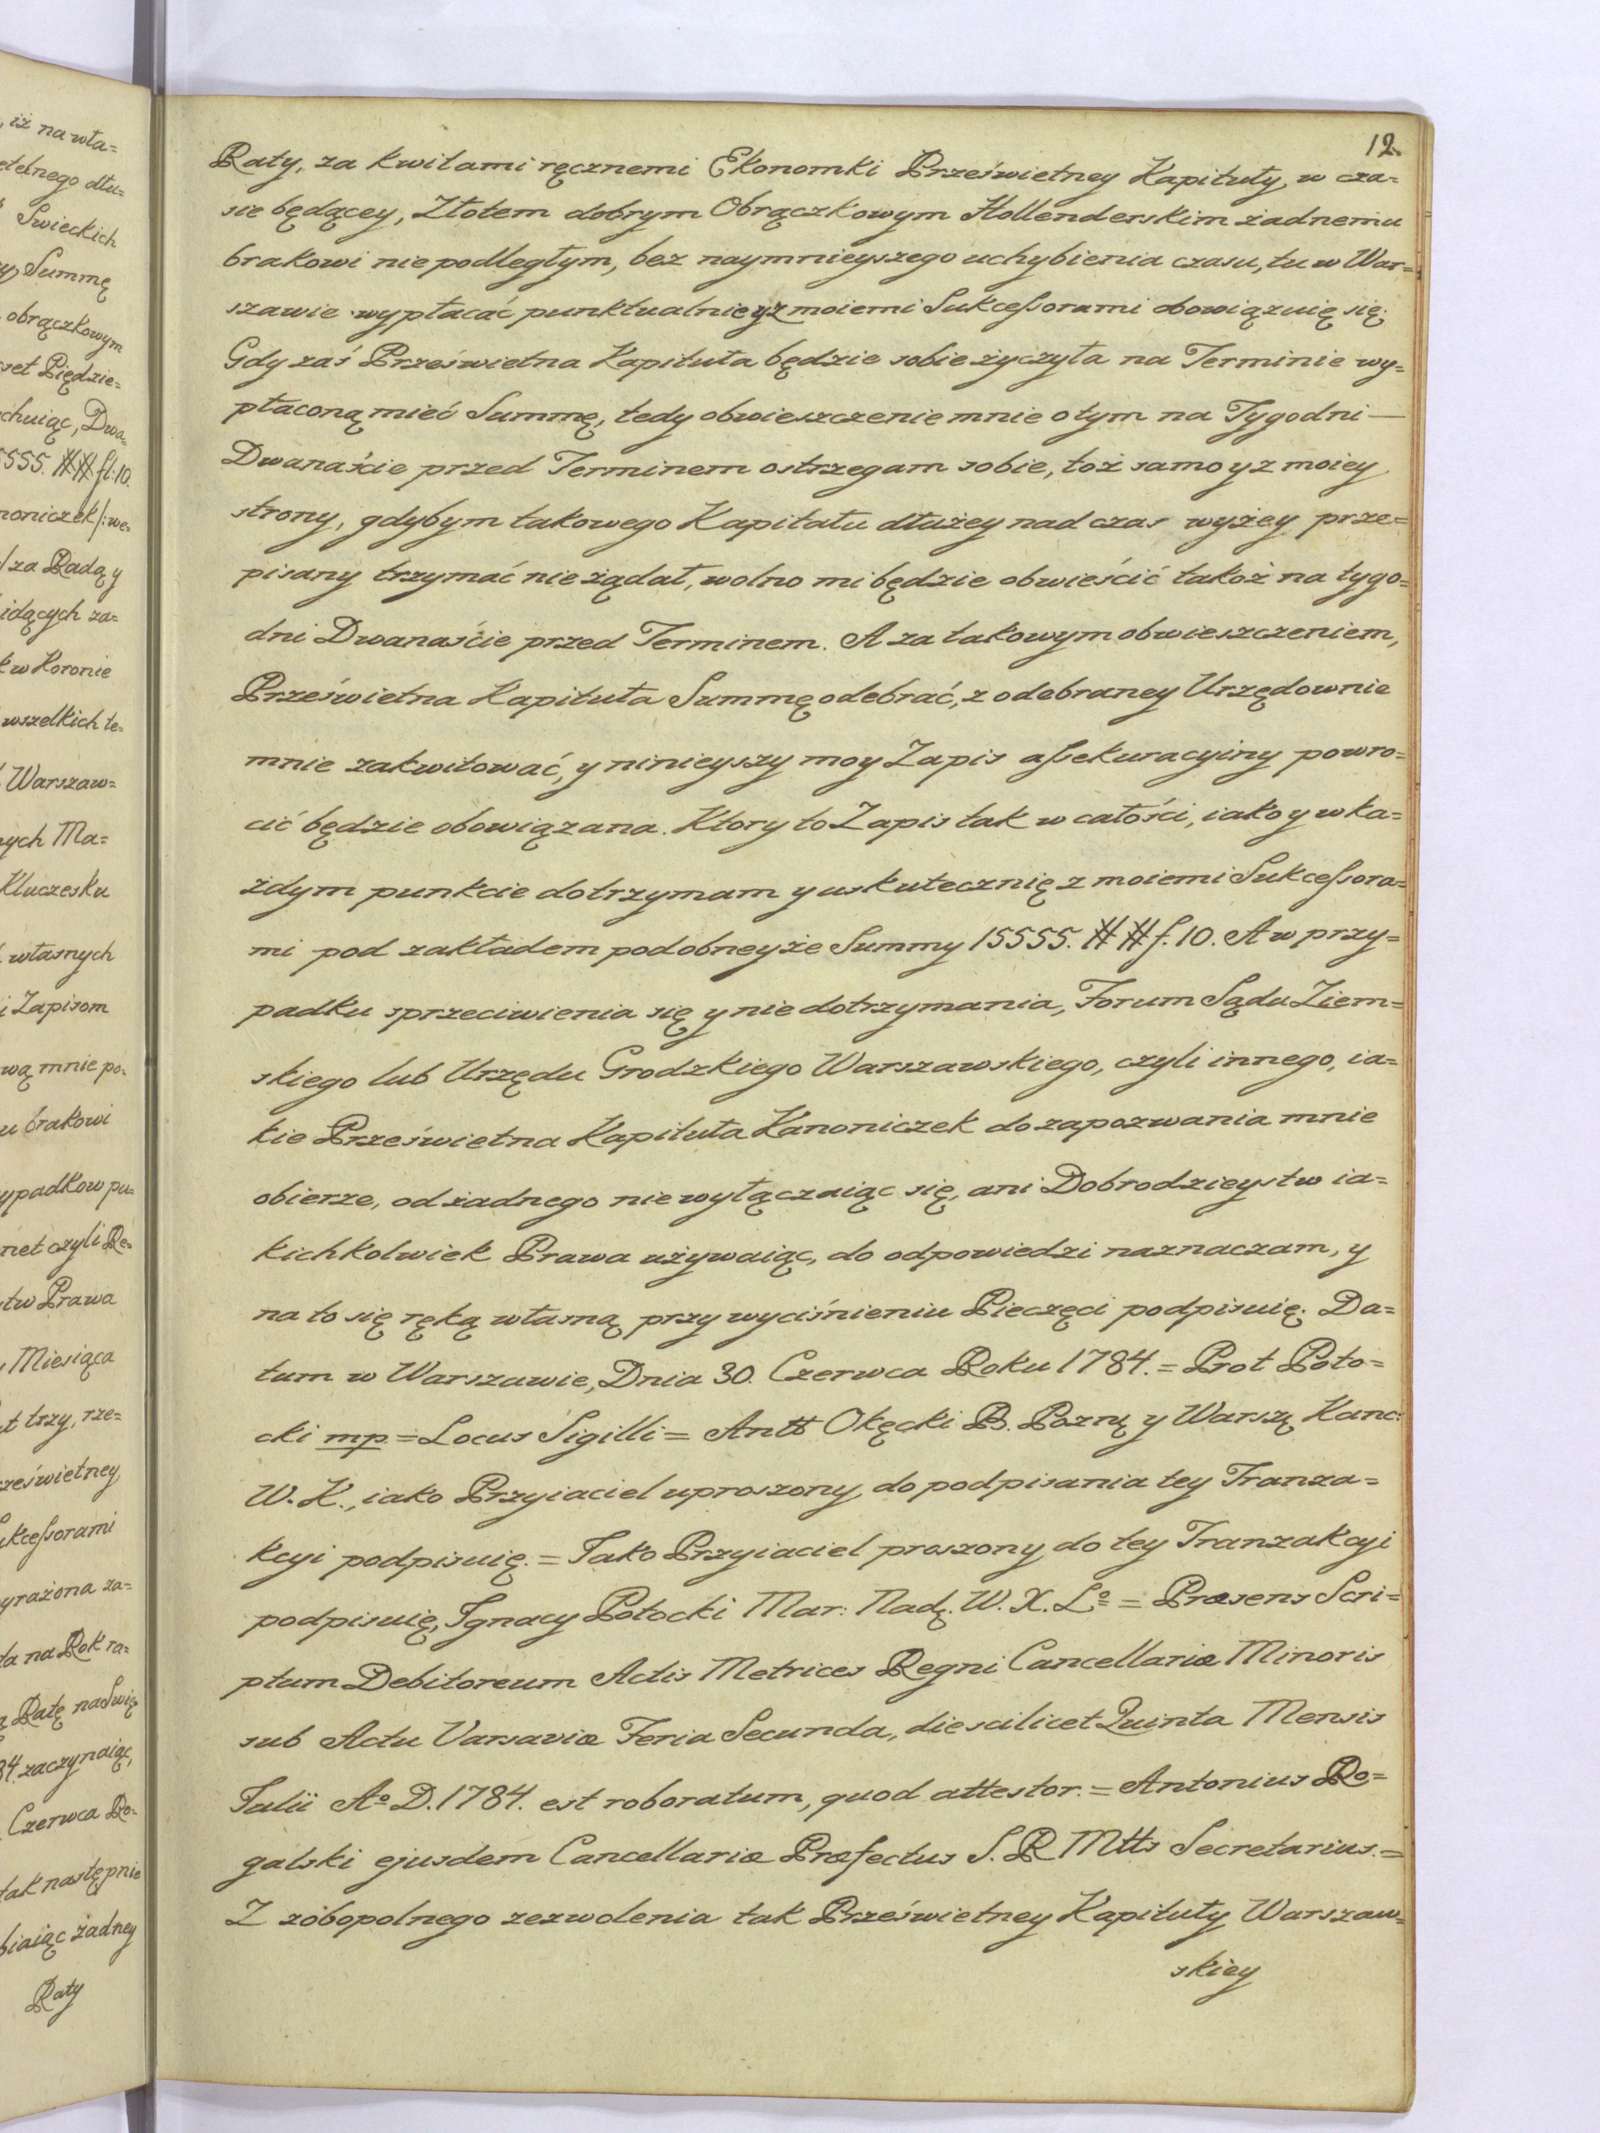 12.
Raty, za kwitami ręcznemi Ekonomki Prześwietney Kapituły, w cza=
sie będącey, Złotem dobrym Obrączkowym Hollenderskim żadnemu
brakowi nie podległym, bez naymnieyszego uchybienia czasu, tu w War=
szawie wypłacać punktualnie y z moiemi Sukcessorami obowiązuię się.
Gdy zaś Prześwietna Kapituła będzie sobie życzyła na Terminie wy=
płaconą mieć Summę, tedy obwieszczenie mnie o tym na Tygodni —
Dwanaście przed Terminem ostrzegam sobie, toż samo y z moiey
strony, gdybym takowego Kapitału dłużey nad czas wyżey prze=
pisany trzymać nie żądał, wolno mi będzie obwieścić takoż na tygo=
dni Dwanaście przed Terminem. A za takowym obwieszczeniem,
Prześwietna Kapituła Summę odebrać, z odebraney Urzędownie
mnie zakwitować, y ninieyszy moy Zapis assekuracyiny powro=
cić będzie obowiązana. Ktory to Zapis tak w całości, iako y w ka=
żdym punkcie dotrzymam y uskutecznię z moiemi Sukcessora=
mi pod zakładem podobneyże Summy 15555. ## f. 10. A w przy=
padku sprzeciwienia się y nie dotrzymania, Forum Sądu Ziem=
skiego lub Urzędu Grodzkiego Warszawskiego, czyli innego, ia=
kie Prześwietna Kapituła Kanoniczek do zapozwania mnie
obierze, od żadnego nie wyłączaiąc się, ani Dobrodzieystw ia=
kichkolwiek Prawa używaiąc, do odpowiedzi naznaczam, y
na to się ręką własną przy wyciśnieniu Pieczęci podpisuię. Da=
tum w Warszawie, Dnia 30. Czerwca Roku 1784. = Prot Poto=
cki mp. = Locus Sigilli = Antt Okęcki B. Pozną y Warszą Kanc:
W. K., iako Przyiaciel uproszony do podpisania tey Tranza=
kcyi podpisuię. = Jako Przyiaciel proszony do tey Tranzakcyi
podpisuię, Ignacy Potocki Mar: Nadę. W. X. Lº = Præsens Scri=
ptum Debitoreum Actis Metrices Regni Cancellariæ Minoris
sub Actu Varsaviæ Feria Secunda, die scilicet Quinta Mensis
Julii Aº D. 1784. est roboratum, quod attestor. = Antonius Ro=
galski ejusdem Cancellariæ Præfectus S. R Mtts Secretarius. =
Z zobopolnego zezwolenia tak Prześwietney Kapituły Warszaw=
skiey
, iż na wła=
dłu=
Swieckich
Summę
obrączkowym
set Piędzie=
chuiąc, Dwa=
5555. ## fl: 10.
noniczek /: we=
za Radą y
idących za=
k w Koronie
wszelkich te=
Warszaw=
nych Ma=
Kluczesku
własnych
i Zapisom
wą mnie po=
u brakowi
ypadkow pu=
net czyli Re=
stw Prawa
Miesiąca
t trzy, rze=
ześwietney
ukcessorami
yrażona za=
da na Rok ra=
ą Ratę na Swię
84. zaczynaiąc,
Czerwca Ro=
tak następnie
biaiąc żadney
Raty